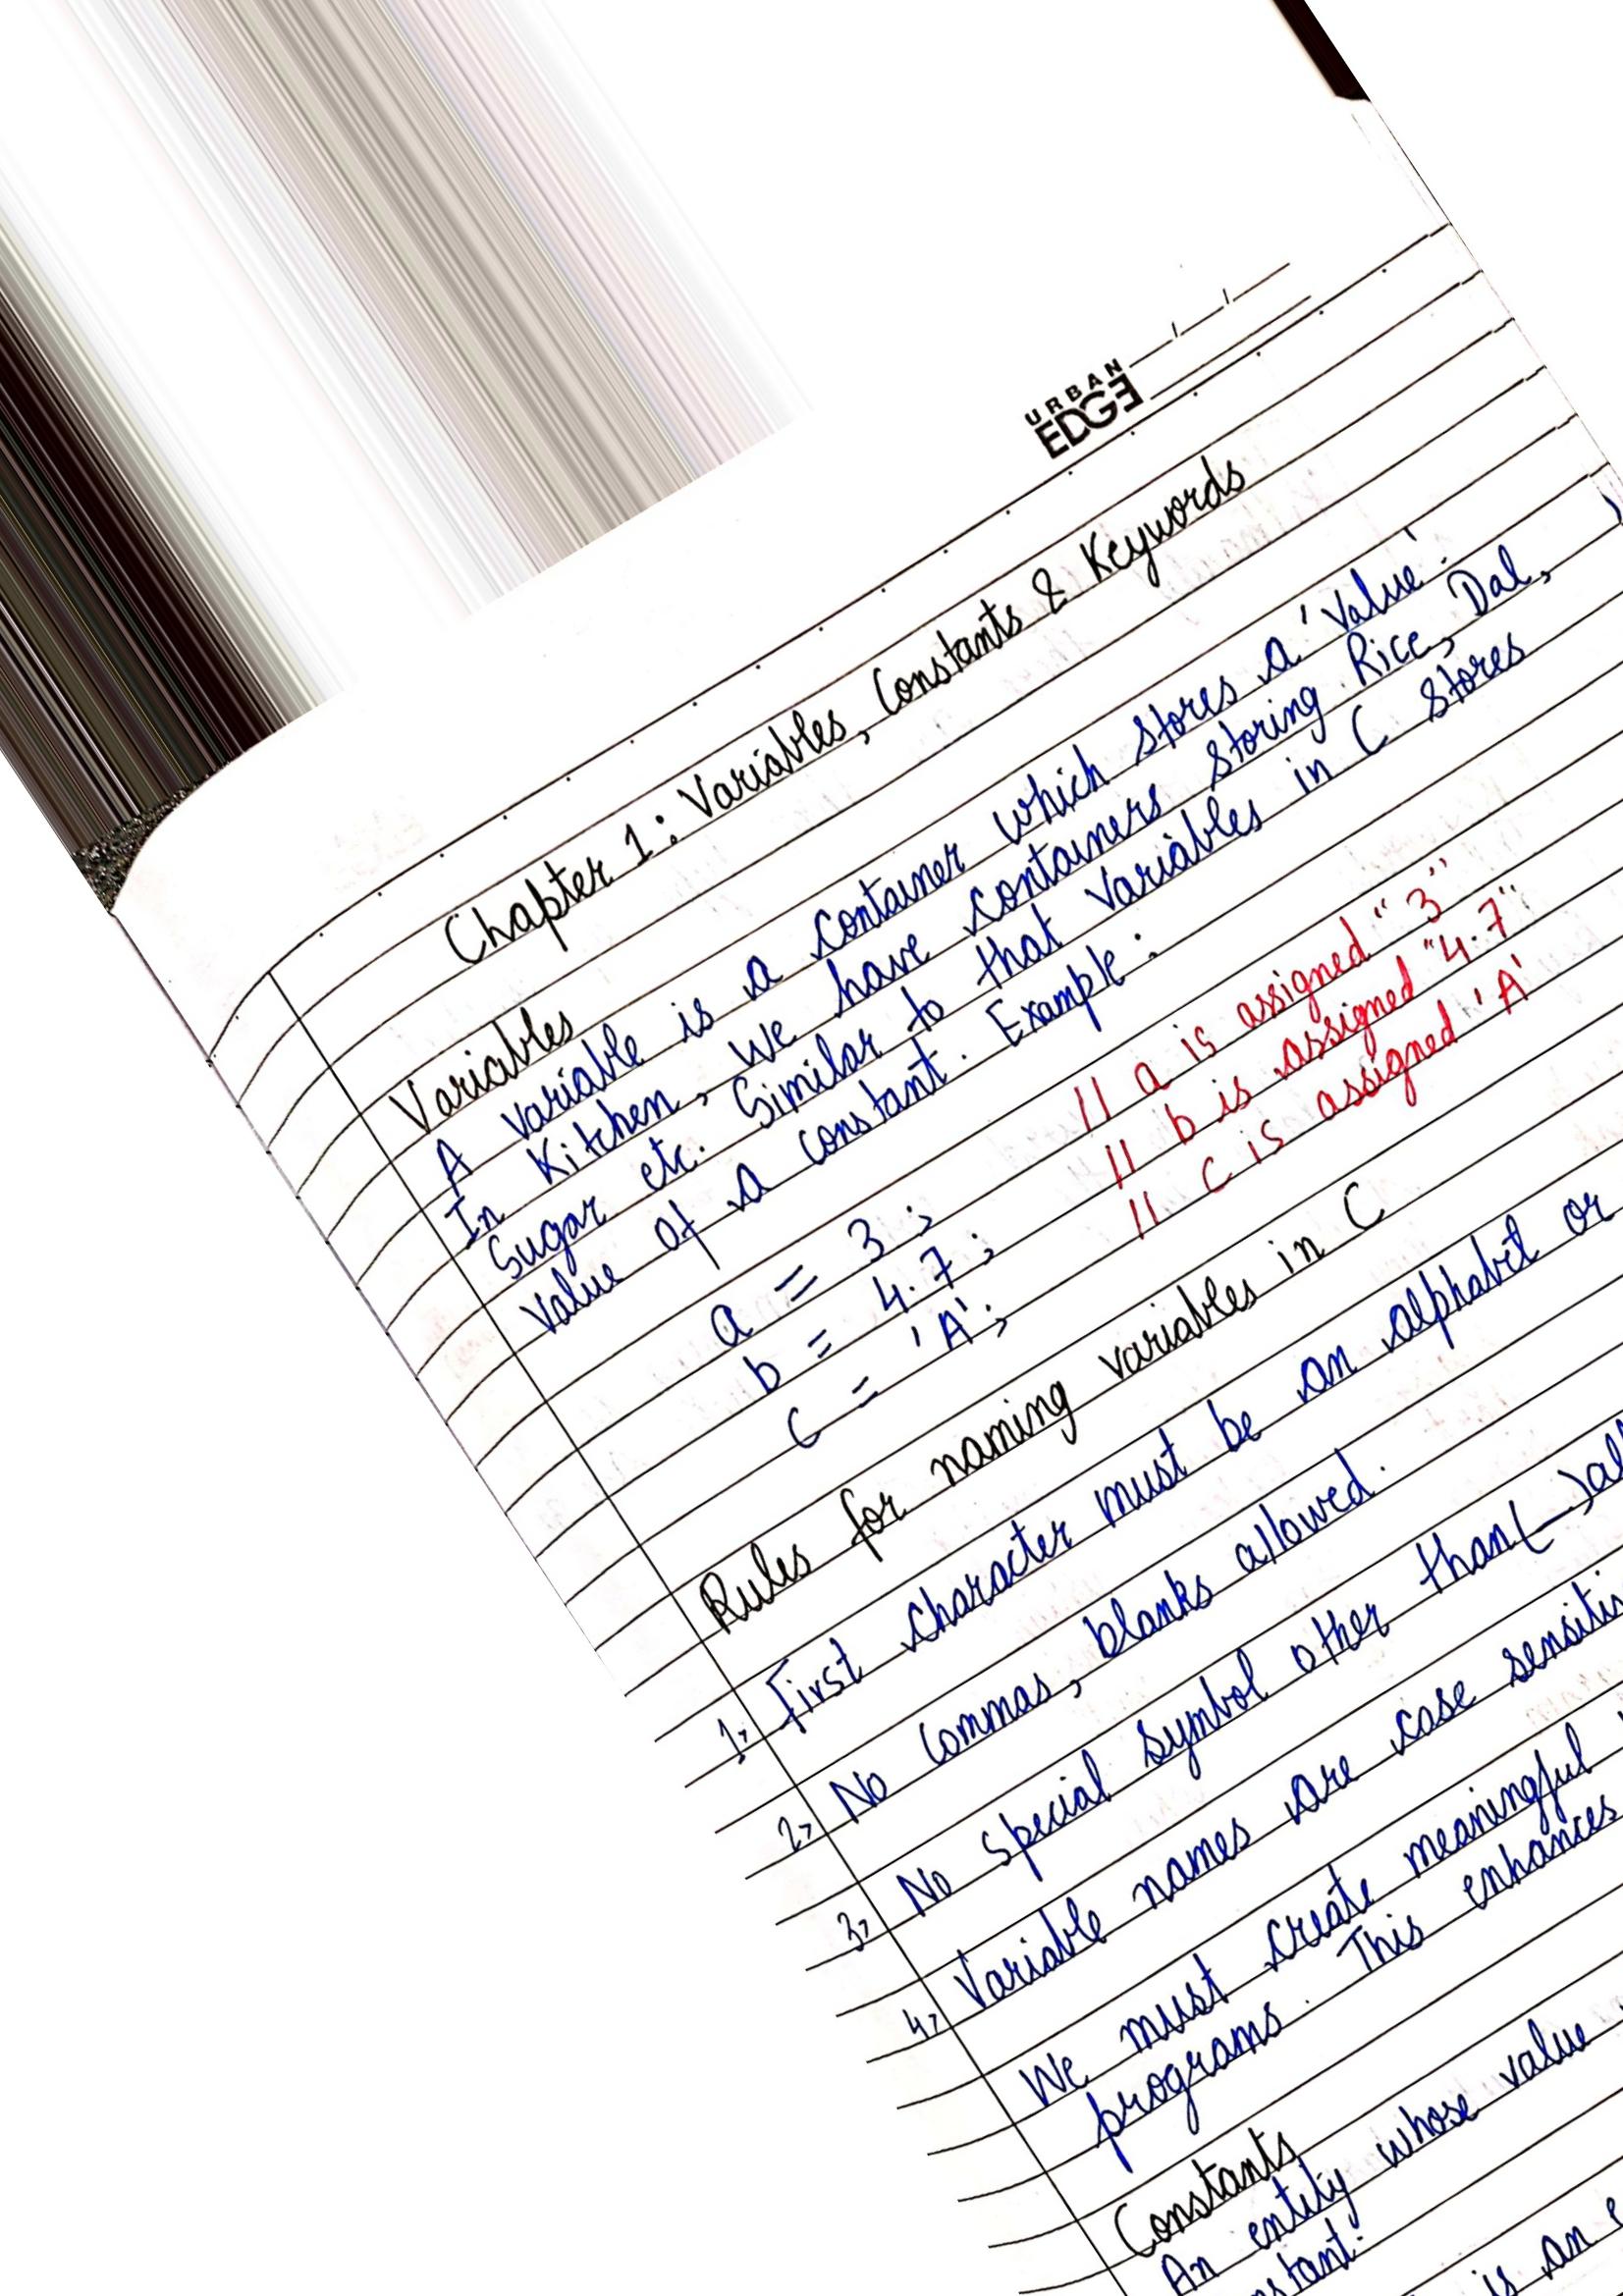 URBAN
EDGE
Chapter 1: Variables, Constants & Keywords
Variables
A variable is a container which stores a 'value'.
In Kitchen, We have containers storing Rice, Dal,
Sugar etc. Similar to that Variables in C stores
value of a constant. Example:
a = 3; // a is assigned "3"
b = 4.7; // b is assigned "4.7"
c = 'A'; // c is assigned 'A'
Rules for naming variables in C
1, First character must be an alphabet or
2, No commas, blanks allowed.
3, No special symbol other than (_) al
4, Variable names are case sensitiv
We must create meaningful
programs. This enhances
Constants
An entity whose value
nstant.
is an